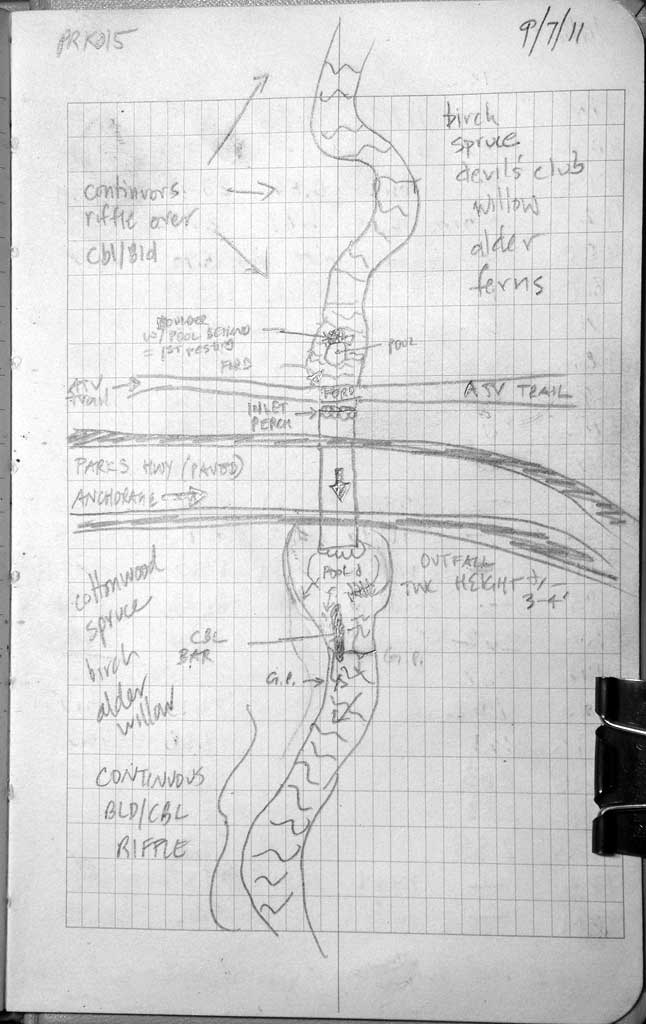 PRK015
9/7/11
birch
spruce
devil's club
willow
alder
ferns
continuous
riffle over
cbl/Bld
BOULDER
w/ POOL BEHIND
= 1st resting
POOL
FORD
ATV
trail
FORD
ATV TRAIL
INLET
PERCH
PARKS HWY (PAVED)
ANCHORAGE
cottonwood
spruce
birch
alder
willow
POOL
OUTFALL
HEIGHT +/-
3-4'
CBL
BAR
G.P.
G.P.
CONTINUOUS
BLD/CBL
RIFFLE